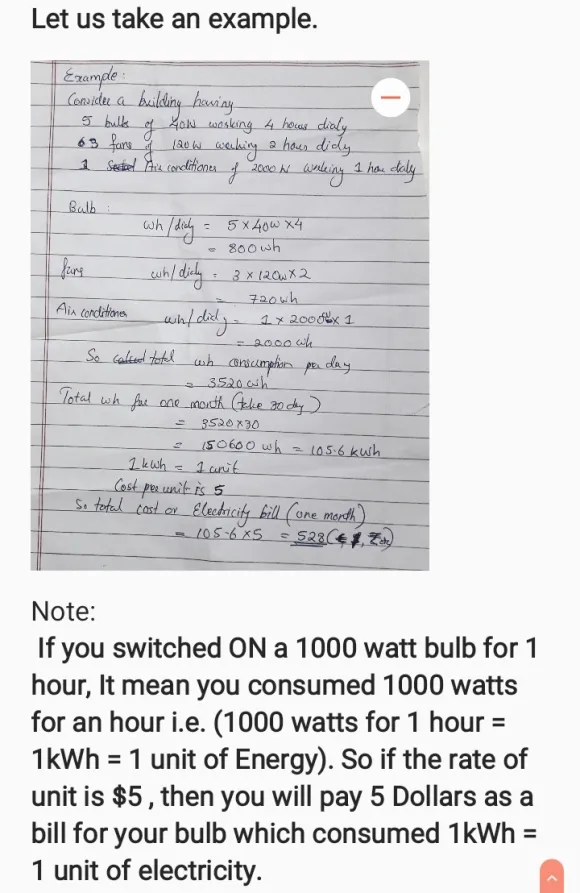 Let us take an example.
Example:
Consider a building having
5 bulbs of 40W working 4 hours dialy
3 fans of 120W working 2 hours didy
1 Air conditioner of 2000 W working 1 hou daly
Bulb :
wh/dialy = 5 x 40W x 4
= 800 wh
fans wh/dialy = 3 x 120W x 2
= 720 wh
Air conditioner wh/dialy = 1 x 2000W x 1
= 2000 wh
So total wh consumption per day
= 3520 wh
Total wh for one month (take 30 day)
= 3520 x 30
= 150600 wh = 105.6 kwh
1 kwh = 1 unit
Cost per unit is 5
So total cost or Electricity bill (one month)
= 105.6 x 5 = 528
Note:
If you switched ON a 1000 watt bulb for 1
hour, It mean you consumed 1000 watts
for an hour i.e. (1000 watts for 1 hour =
1kWh = 1 unit of Energy). So if the rate of
unit is $5 , then you will pay 5 Dollars as a
bill for your bulb which consumed 1kWh =
1 unit of electricity.